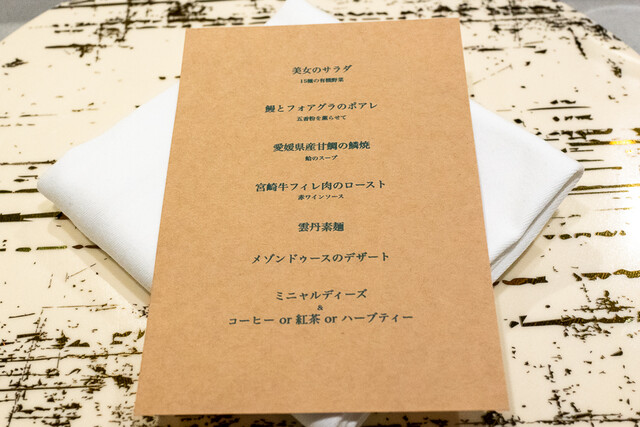 美女のサラダ
15種の有機野菜
鰻とフォアグラのポアレ
五香粉を薫らせて
愛媛県産甘鯛の鱗焼
蛤のスープ
宮崎牛フィレ肉のロースト
赤ワインソース
雲丹素麺
メゾンドゥースのデザート
ミニャルディーズ
&
コーヒー or 紅茶 or ハーブティー